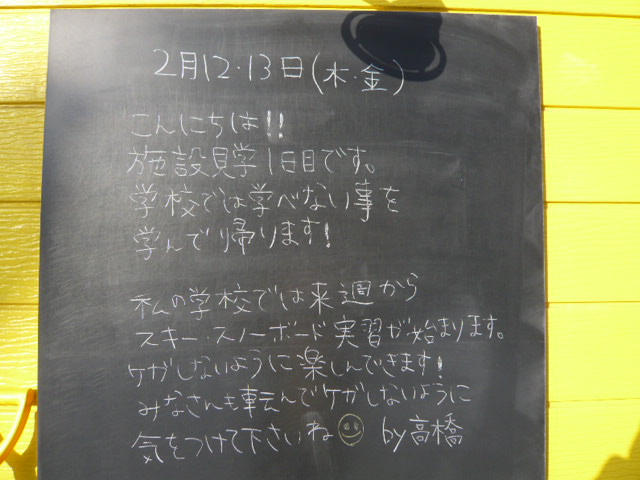 2月12・13日(木・金)
こんにちは!!
施設見学1日目です。
学校では学べない事を
学んで帰ります!
私の学校では来週から
スキー・スノーボード実習が始まります。
ケガしないように楽しんできます!
みなさんも転んでケガしないように
気をつけて下さいね by高橋